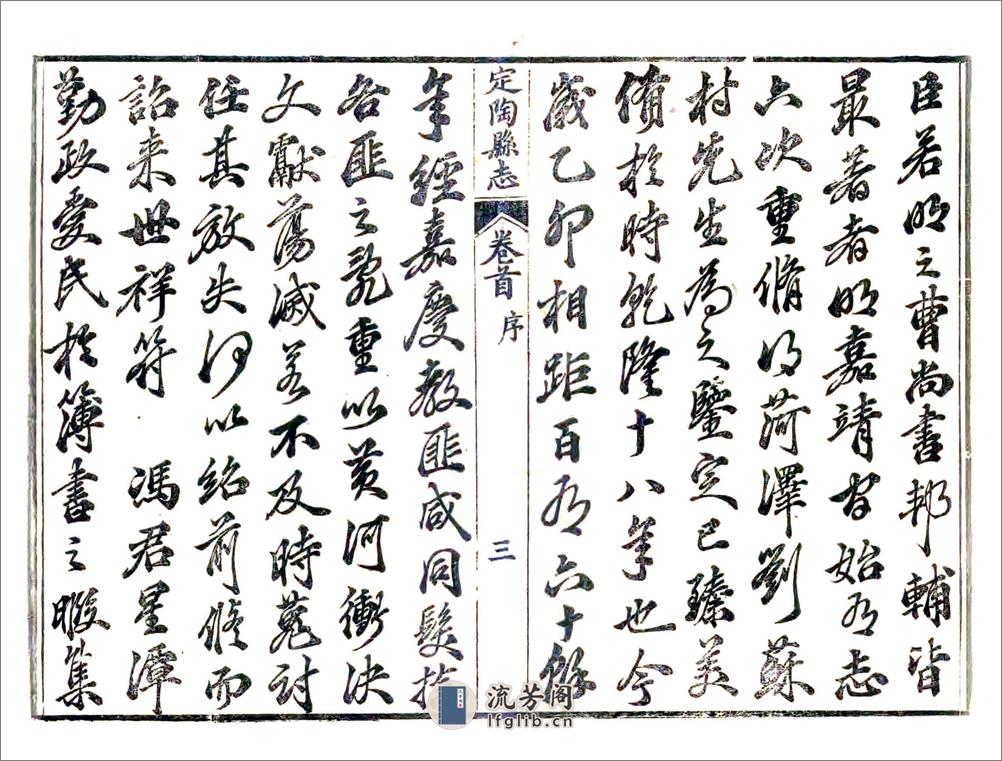 臣若明之曹尚書邦輔皆
最著者明嘉靖旹始有志
六次重脩得菏澤劉蘇
村先生為之鑒定已臻美
備於時乾隆十八年也今
歲乙卯相距百有六十餘
定陶縣志 卷首 序 三
年經嘉慶教匪咸同髮捻
各匪之亂重以黃河衝決
文獻蕩滅若不及時蒐討
任其放失何以紹前脩而
詒来世祥符 馮君星潭
勤政愛民於簿書之暇集
流芳阁
lfglib.cn